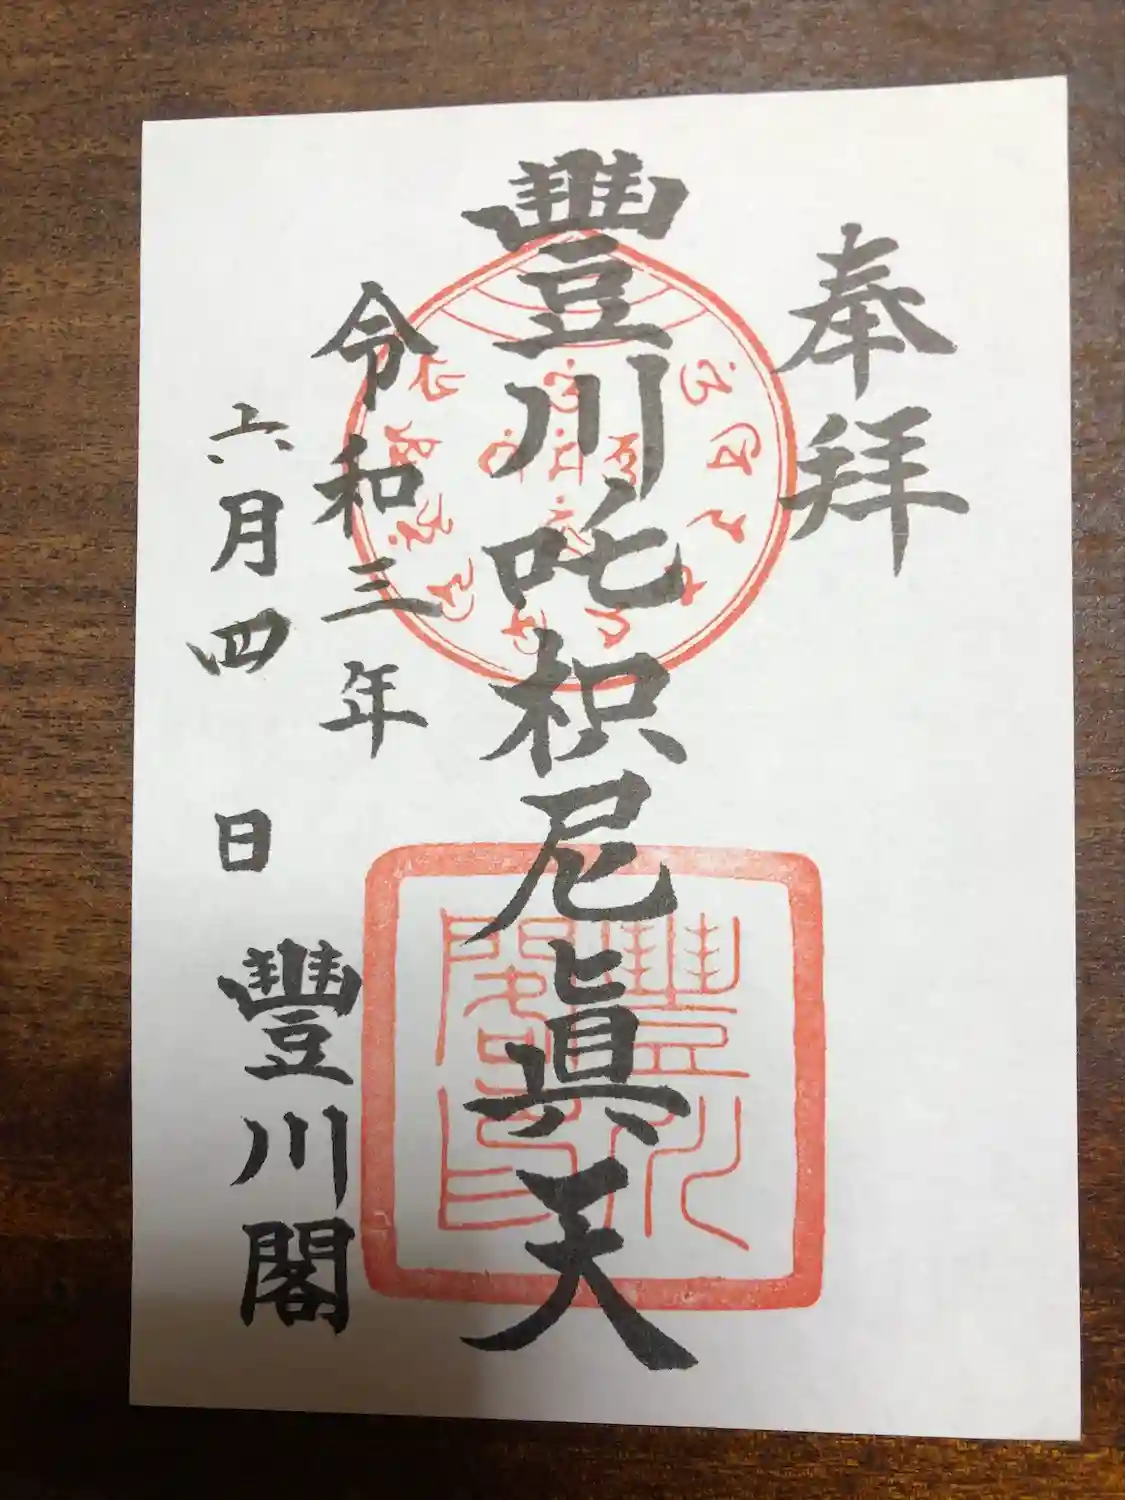 奉拜
豐川吒枳尼眞天
令和三年
六月四日
豐川閣
豐川閣印